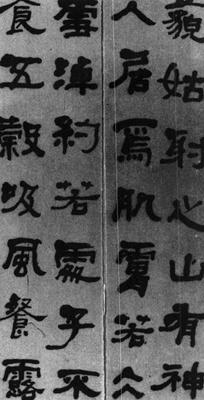 藐姑射之山有神
人居焉肌膚若仌
雪淖約若處子不
食五穀吸風餐露